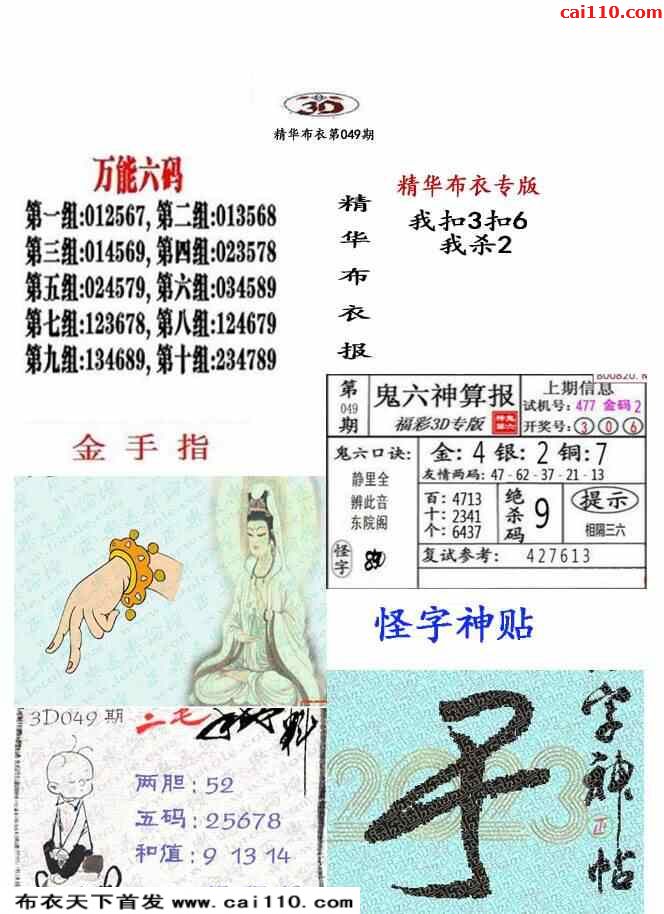 cai110.com
3D
精华布衣第049期
万能六码
第一组:012567,第二组:013568
第三组:014569,第四组:023578
第五组:024579,第六组:034589
第七组:123678,第八组:124679
第九组:134689,第十组:234789
精华布衣报
精华布衣专版
我扣3扣6
我杀2
金手指
第049期
鬼六神算报
福彩3D专版
上期信息
试机号:477 金码2
开奖号:306
鬼六口诀:
静里全
辨此音
东院阁
怪字
金:4 银:2 铜:7
友情两码:47-62-37-21-13
百:4713
十:2341
个:6437
绝杀码
9
提示
相隔三六
复试参考: 427613
怪字神贴
3D049期
两胆:52
五码:25678
和值:9 13 14
2023
字神帖
布衣天下首发 www.cai110.com